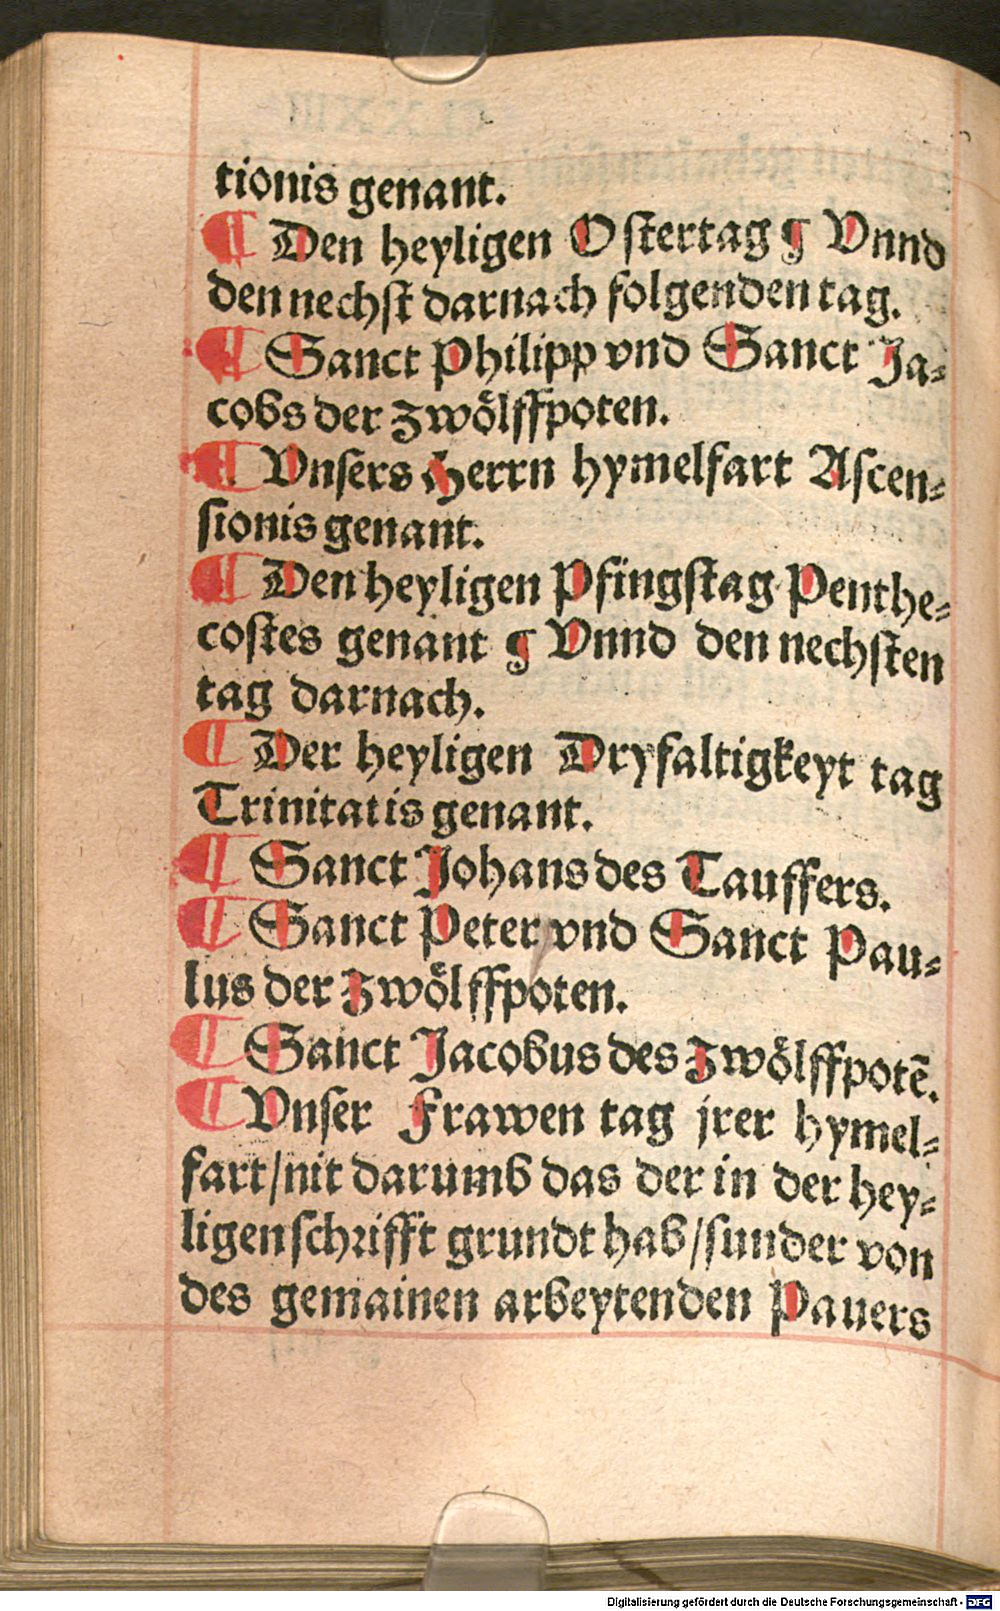 tionis genant.
¶ Den heyligen Ostertag ¶ Vnnd
den nechst darnach folgenden tag.
¶ Sanct Philipp vnd Sanct Ja-
cobs der zwölffpoten.
¶ Vnsers Herrn hymelfart Ascen-
sionis genant.
¶ Den heyligen Pfingstag Penthe-
costes genant ¶ Vnnd den nechsten
tag darnach.
¶ Der heyligen Dryfaltigkeyt tag
Trinitatis genant.
¶ Sanct Johans des Tauffers.
¶ Sanct Peter vnd Sanct Pau-
lus der zwölffpoten.
¶ Sanct Jacobus des zwölffpotẽ.
¶ Vnser Frawen tag jrer hymel-
fart/nit darumb das der in der hey-
ligen schrifft grundt hab/sunder von
des gemainen arbeytenden Pauers
Digitalisierung gefördert durch die Deutsche Forschungsgemeinschaft - DFG